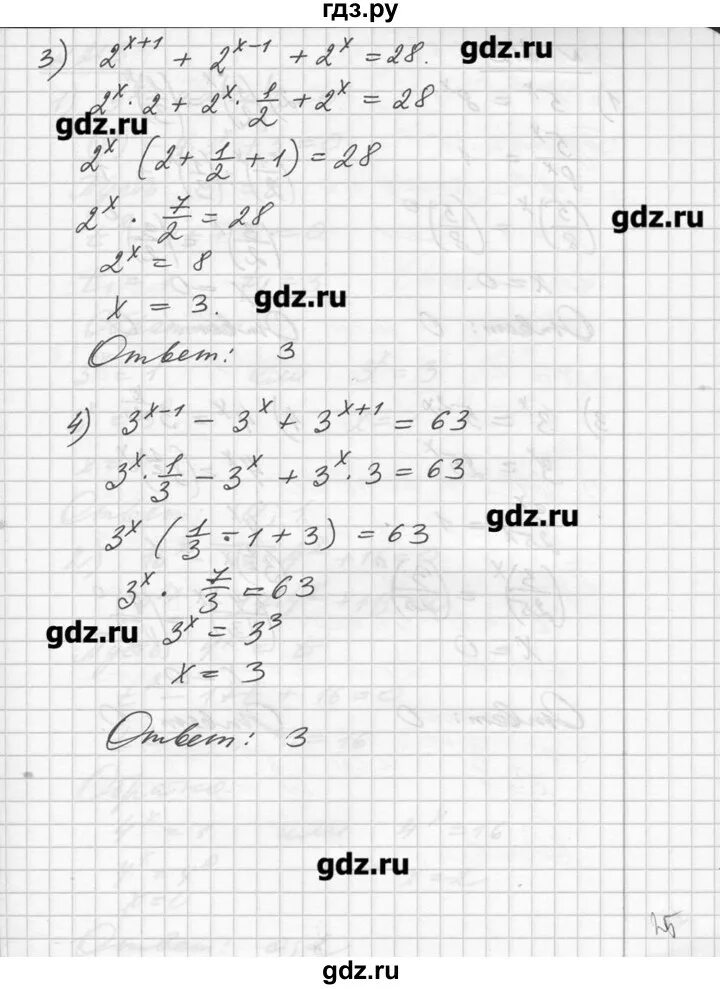 гдз.ру
3) 2^{x+1} + 2^{x-1} + 2^x = 28.
gdz.ru
2^x · 2 + 2^x · 1/2 + 2^x = 28
gdz.ru
2^x (2 + 1/2 + 1) = 28
2^x · 7/2 = 28
gdz.ru
2^x = 8
x = 3.
gdz.ru
Ответ: 3
4) 3^{x-1} - 3^x + 3^{x+1} = 63
3^x · 1/3 - 3^x + 3^x · 3 = 63
gdz.ru
3^x (1/3 - 1 + 3) = 63
3^x · 7/3 = 63
gdz.ru
3^x = 3^3
x = 3
Ответ: 3
gdz.ru
gdz.ru